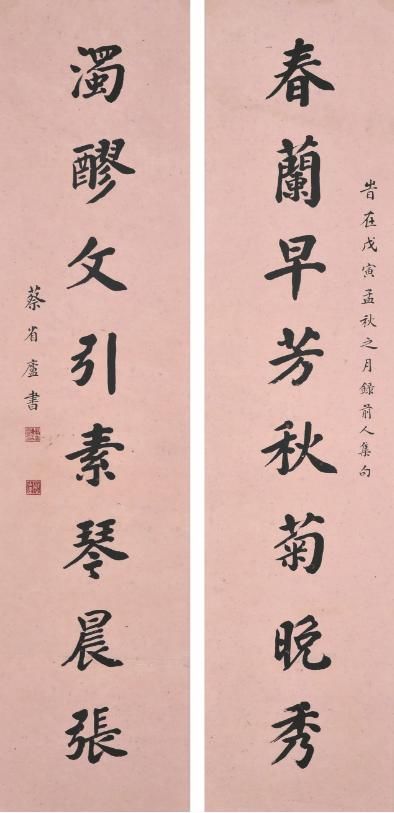 旹在戊寅孟秋之月錄前人集句
春蘭早芳秋菊晚秀
濁醪夕引素琴晨張
蔡省廬書